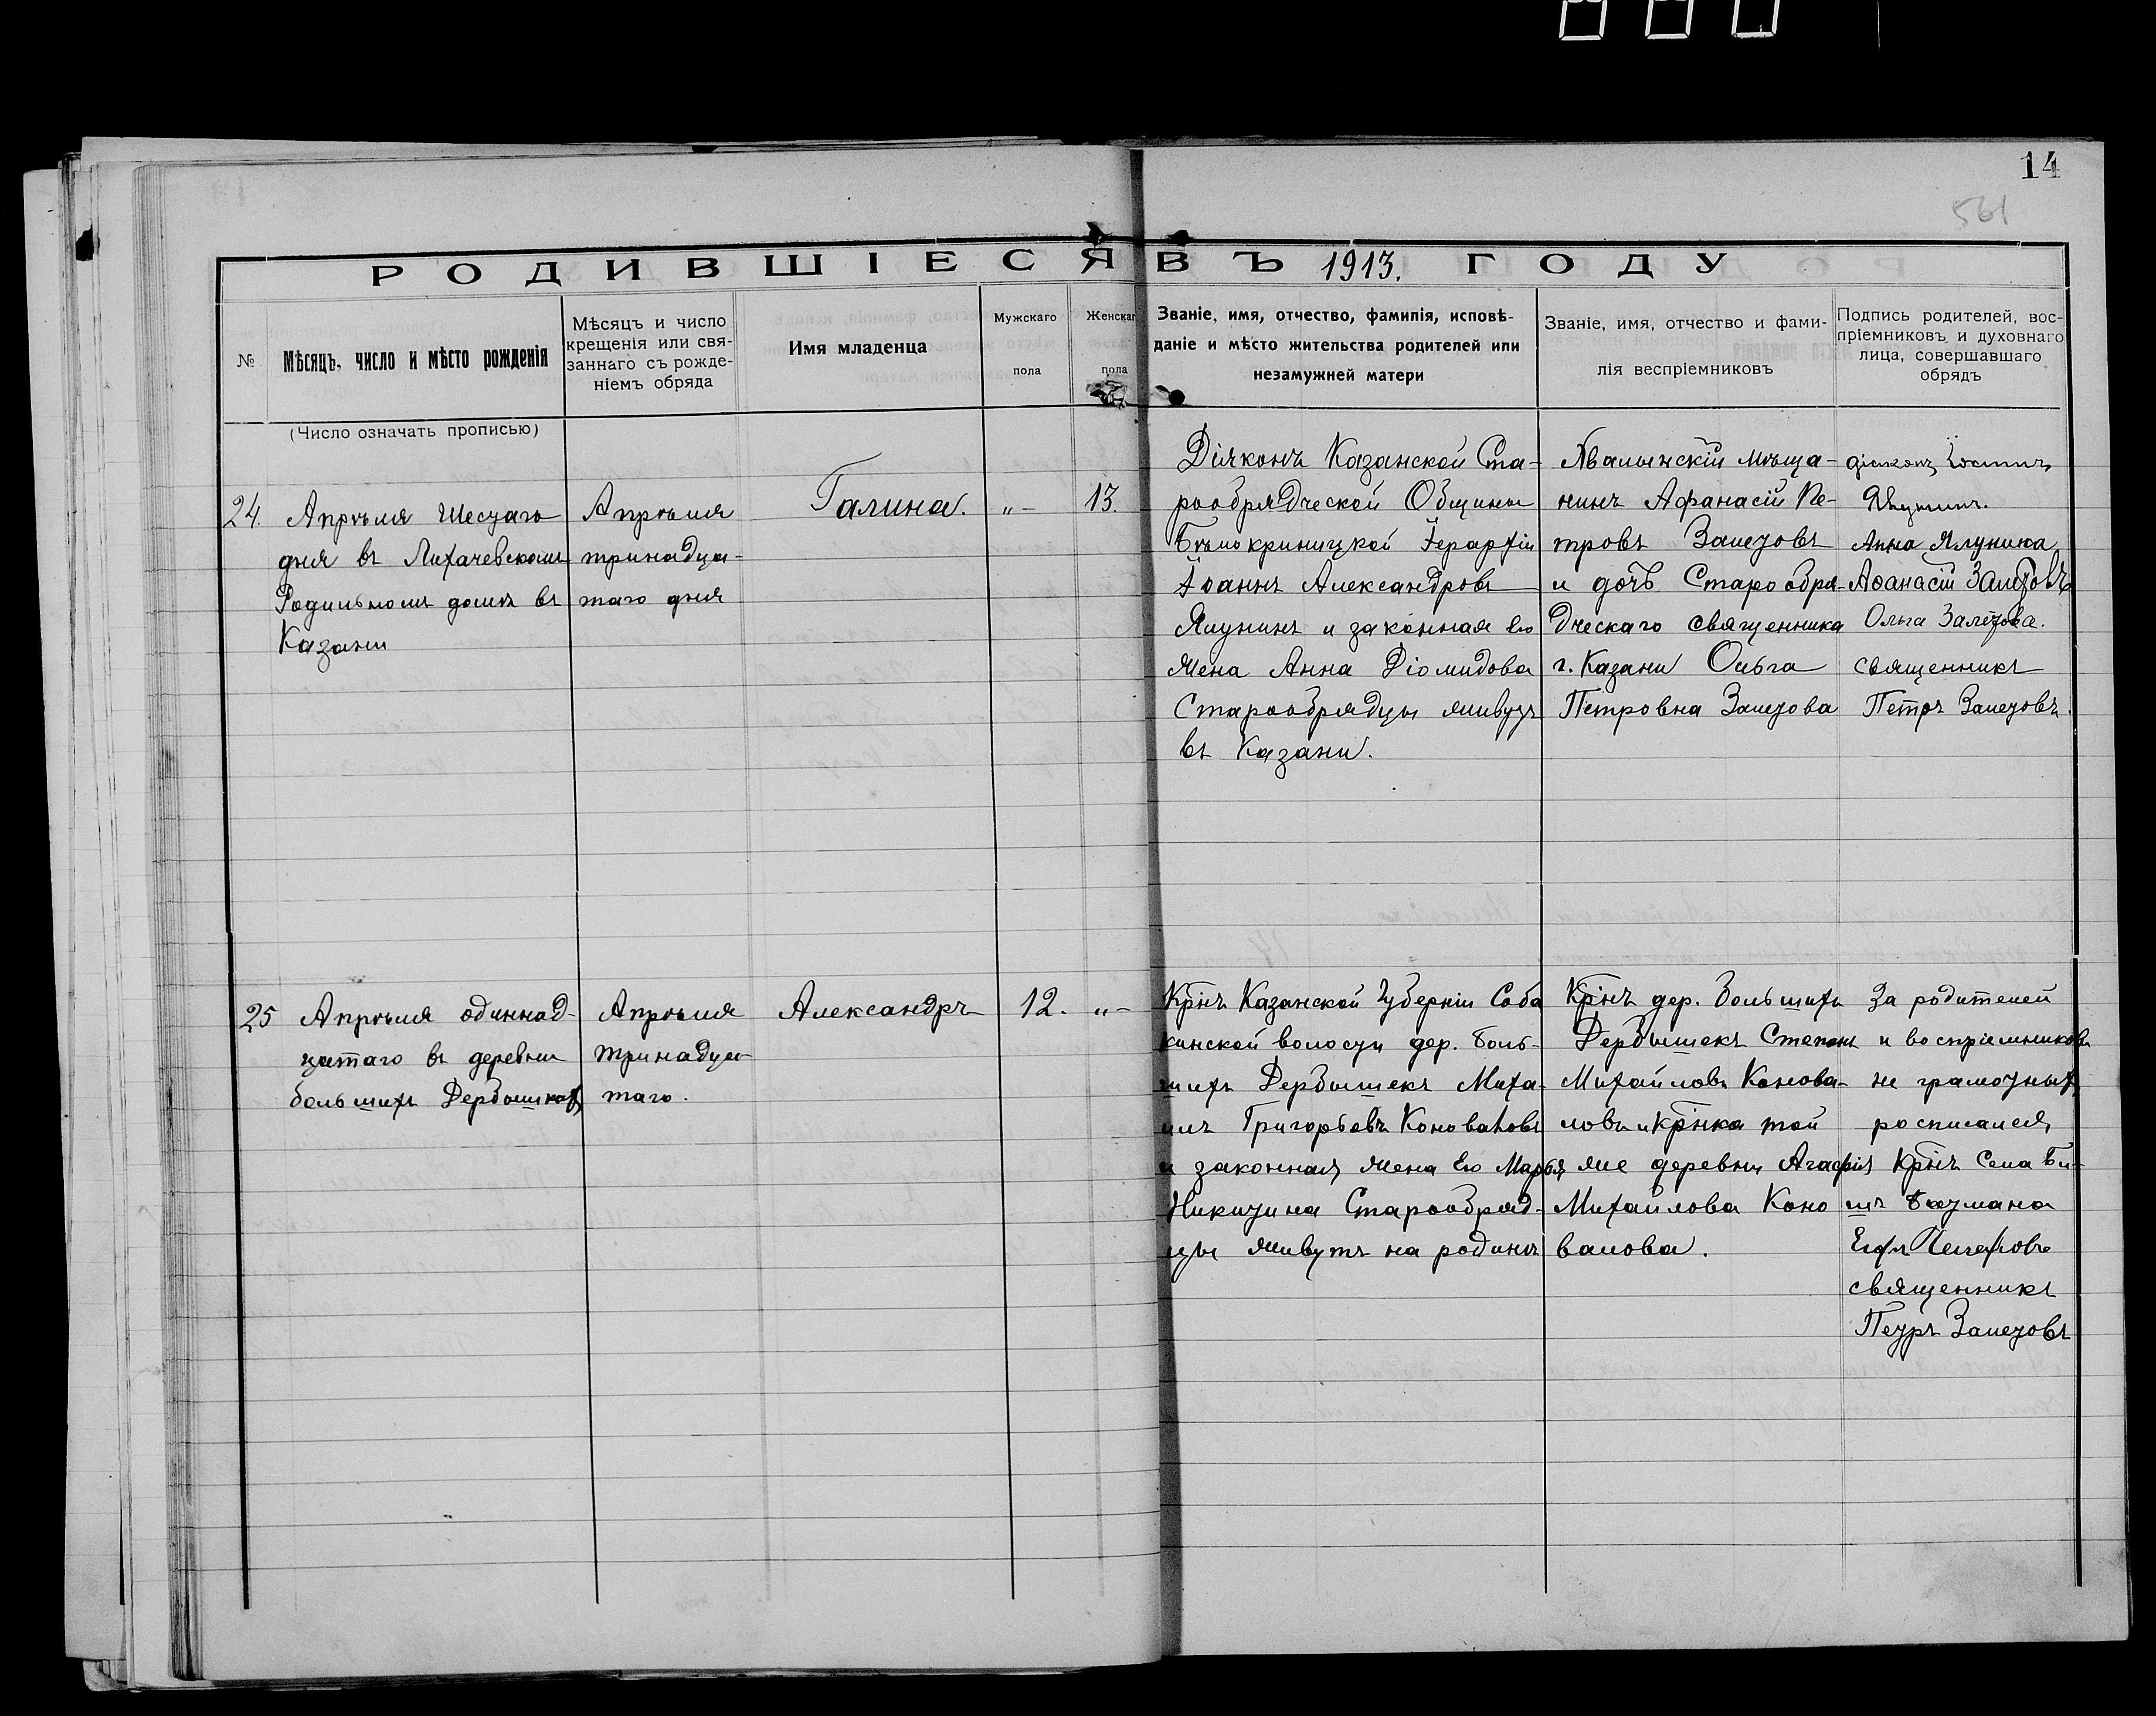 14
561
РОДИВШІЕСЯ ВЪ 1913. ГОДУ
№
Мѣсяцъ, число и мѣсто рожденія
(Число означать прописью)
Мѣсяцъ и число
крещенія или свя-
заннаго съ рожде-
ніемъ обряда
Имя младенца
Мужскаго
пола
Женскаг
пола
Званіе, имя, отчество, фамилія, исповѣ-
даніе и мѣсто жительства родителей или
незамужней матери
Званіе, имя, отчество и фами-
лія веспріемниковъ
Подпись родителей, вос-
пріемниковъ и духовнаго
лица, совершавшаго
обрядъ
24.
Апрѣля Шестаго
дня въ Лихачевскомъ
Родильномъ домѣ въ
Казани
Апрѣля
тринадца-
таго дня
Галина.
„-
13.
Діяконъ Казанской Ста-
рообрядческой Общины
Бѣлокриницкой Іерархіи
Іоаннъ Александровъ
Ялунинъ и законная его
жена Анна Діомидова
Старообрядцы живутъ
въ Казани.
Хвалынскій мѣща-
нинъ Афанасій Пе-
тровъ Залетовъ
и дочь Старообря-
дческаго священника
г. Казани Ольга
Петровна Залетова
діаконъ Іоаннъ
Ялунинъ.
Анна Ялунина
Аѳанасій Залетовъ
Ольга Залетова.
священникъ
Петръ Залетовъ.
25
Апрѣля одиннад-
цатаго въ деревни
большихъ Дербышках
Апрѣля
тринадца-
таго.
Александръ
12.
„-
Крнъ Казанской Губерніи Соба
кинской волости дер. Боль-
шихъ Дербышекъ Миха-
илъ Григорьевъ Коноваловъ
и законная жена его Марья
Никитина Старообряд-
цы живутъ на родинѣ
Крнъ дер. Большихъ
Дербышекъ Степанъ
Михайловъ Конова-
ловъ и крнка той
же деревни Агафія
Михайлова Коно
валова.
За родителей
и воспріемниковъ
не грамотныхъ
росписался
Крнъ Села Би-
шъ Батмана
священникъ
Петръ Залетовъ